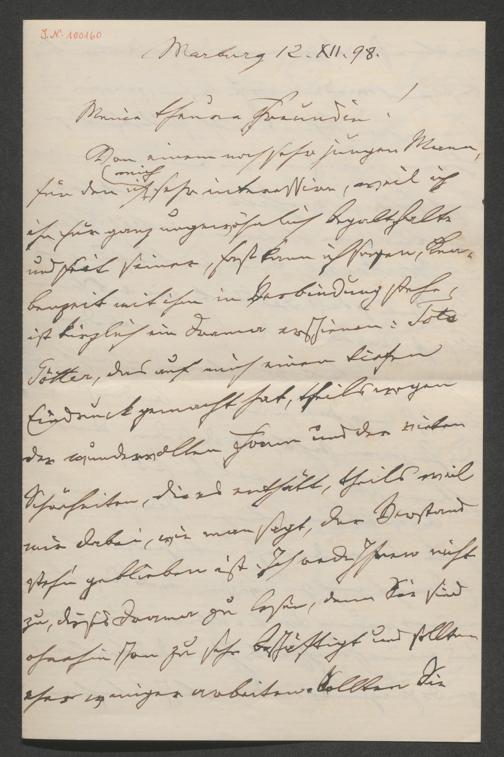 J.N. 100160
Marburg 12. XII. 98.
Meine theure Freundin!
Von einem noch sehr jungen Mann,
für den ich mich sehr interessire, weil ich
ihn für ganz ungewöhnlich begabt halte
und seit seiner, fast kann ich sagen, Kna-
benzeit mit ihm in Verbindung stehe,
ist kürzlich ein Drama erschienen: Tote
Götter, das auf mich einen tiefen
Eindruck gemacht hat, theils wegen
der wundervollen Form und der vielen
Schönheiten, die es enthält, theils weil
mir dabei, wie man sagt, der Verstand
stehn geblieben ist. Ich rede Ihnen nicht
zu, dieses Drama zu lesen, denn Sie sind
ohnehin schon zu sehr beschäftigt und sollten
eher weniger arbeiten. Sollten Sie